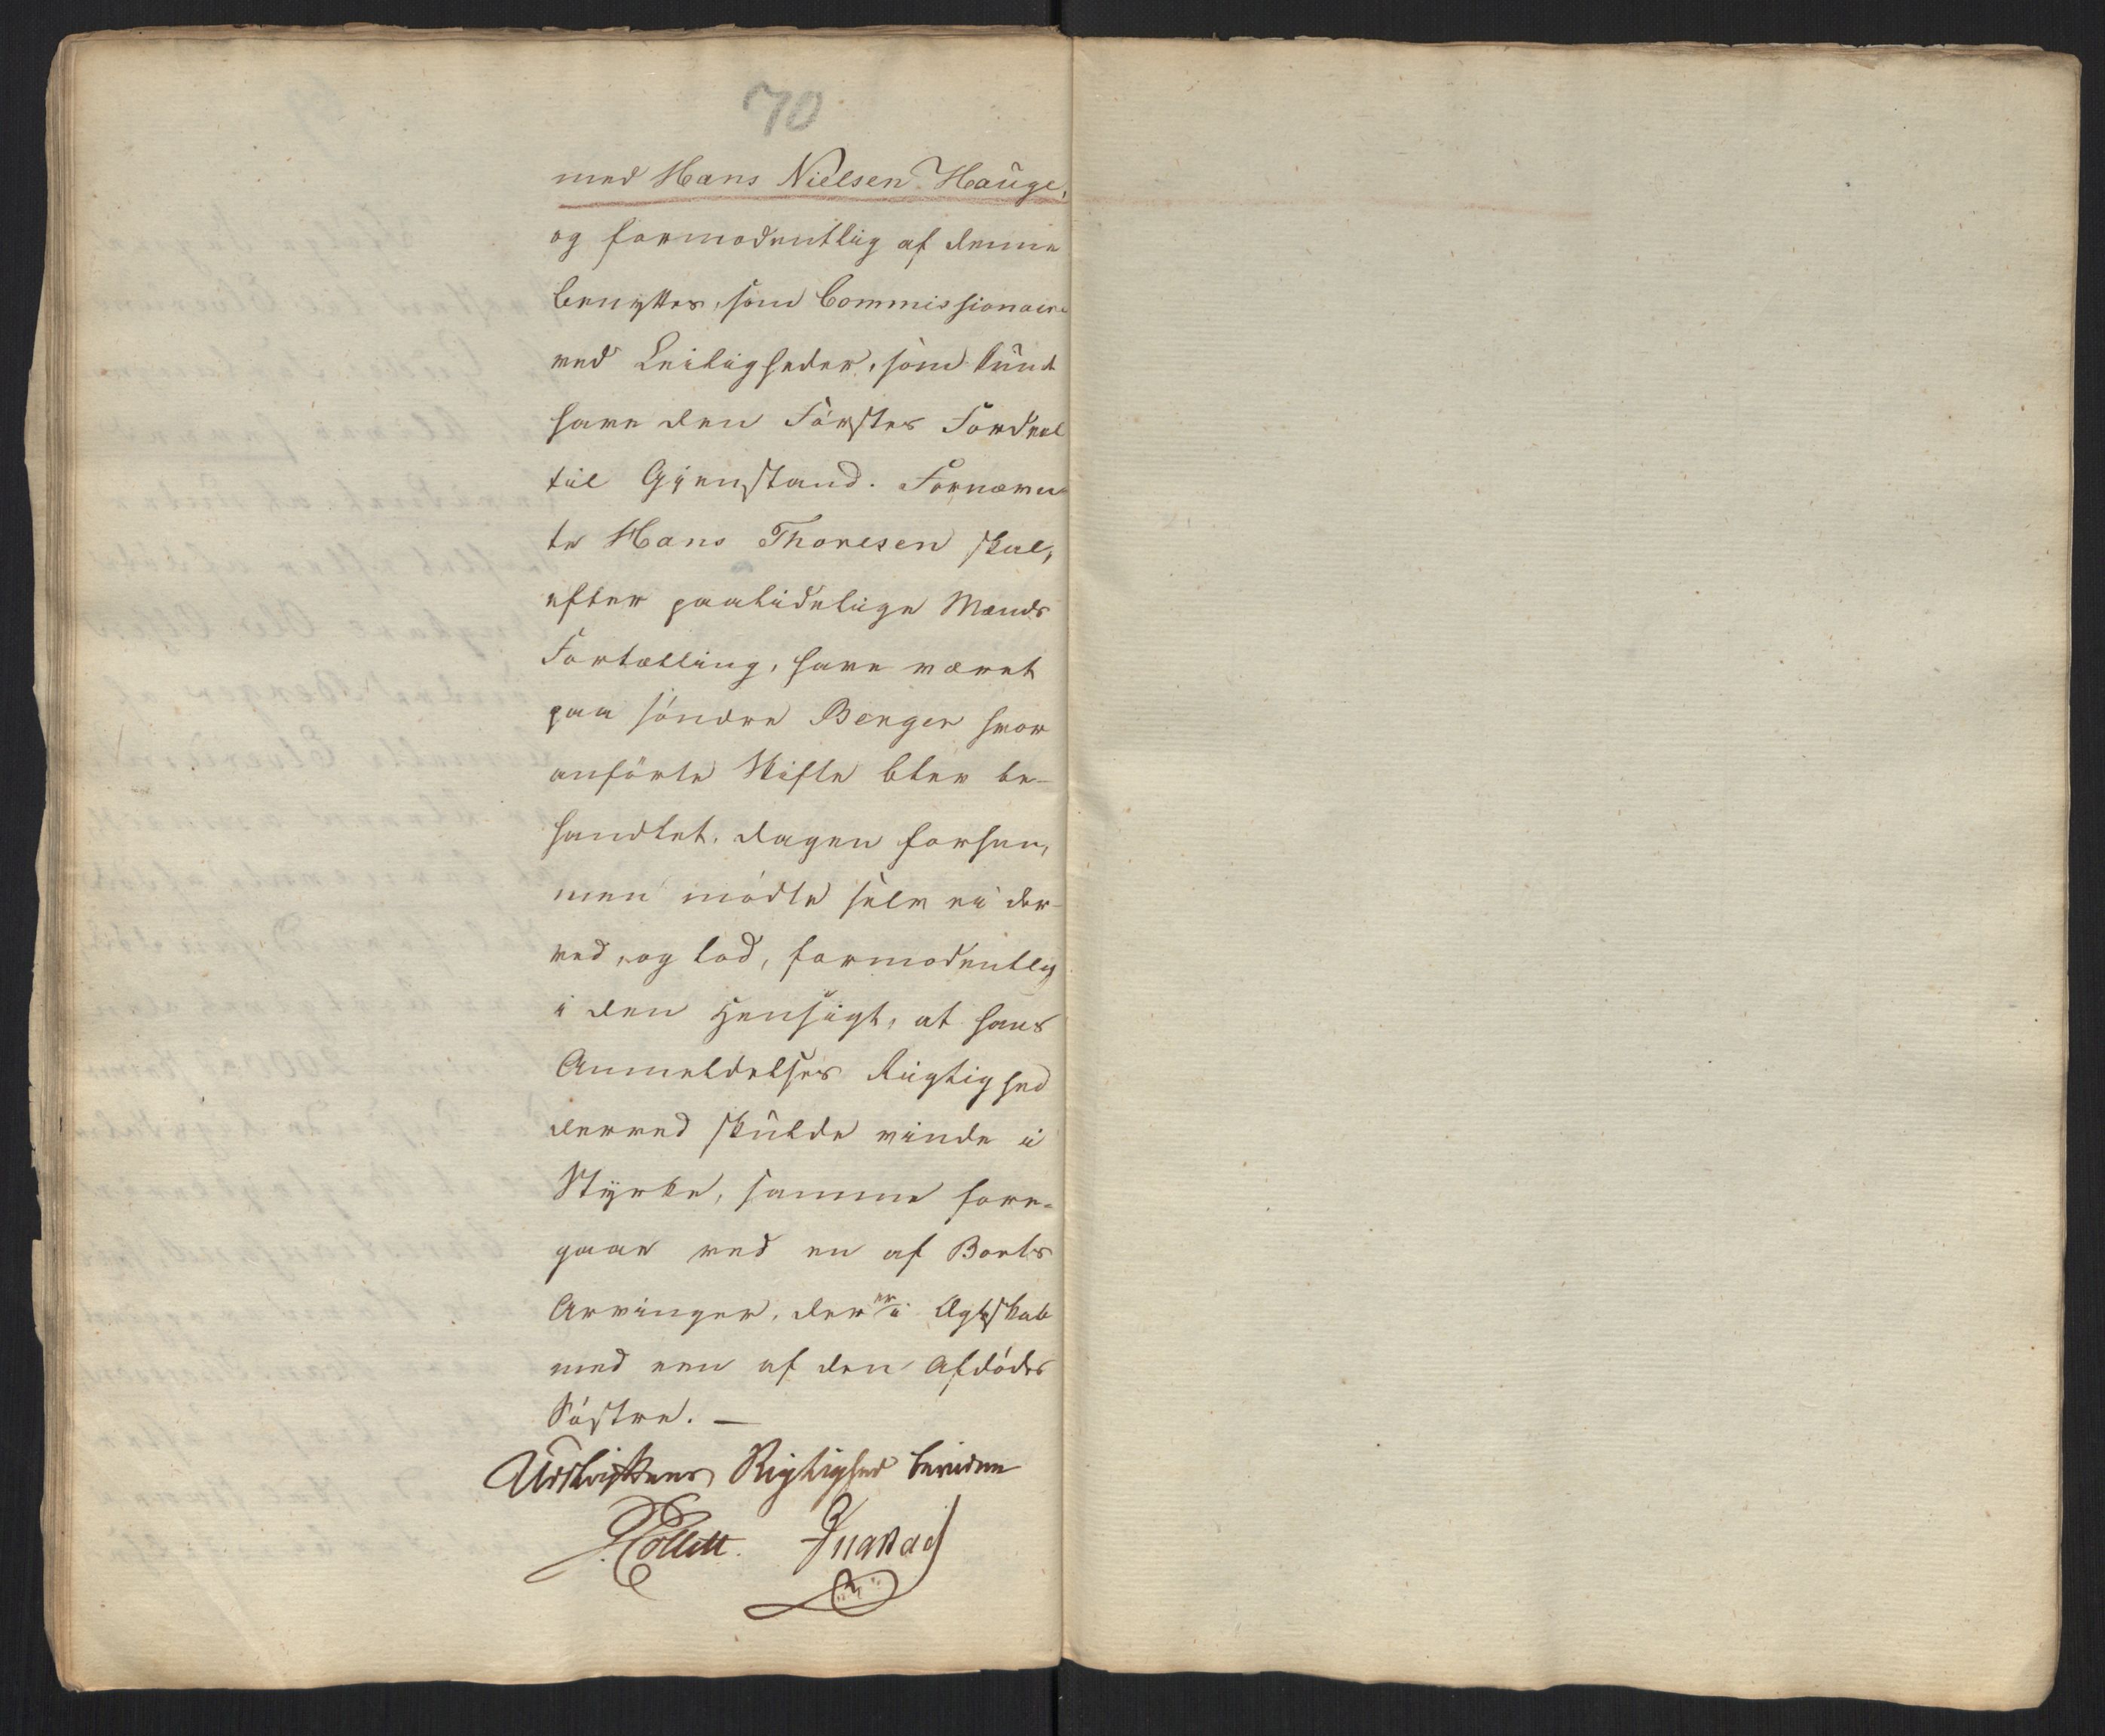 70
med Hans Nielsen Hauge,
og formodentlig af denne
benyttes, som Commissionair
ved Leiligheder, som kunde
have den Førstes Fordeel
til Gjenstand. Fornævn-
te Hans Thoresen skal,
efter paalidelige Mænds
Fortælling, have været
paa søndre Berger hvor
anførte Skifte blev be-
handlet, dagen forhen,
men mødte selv ei der-
ved, og lod, formodentlig
i den Hensigt, at hans
Anmeldelses Rigtighed
derved skulde vinde i
Styrke, samme fore-
gaae ved en af Boets
Arvinger, der er i Ægteskab
med een af den Afdødes
Søstre. —
Udskriftens Rigtighed bevidne
Collett.